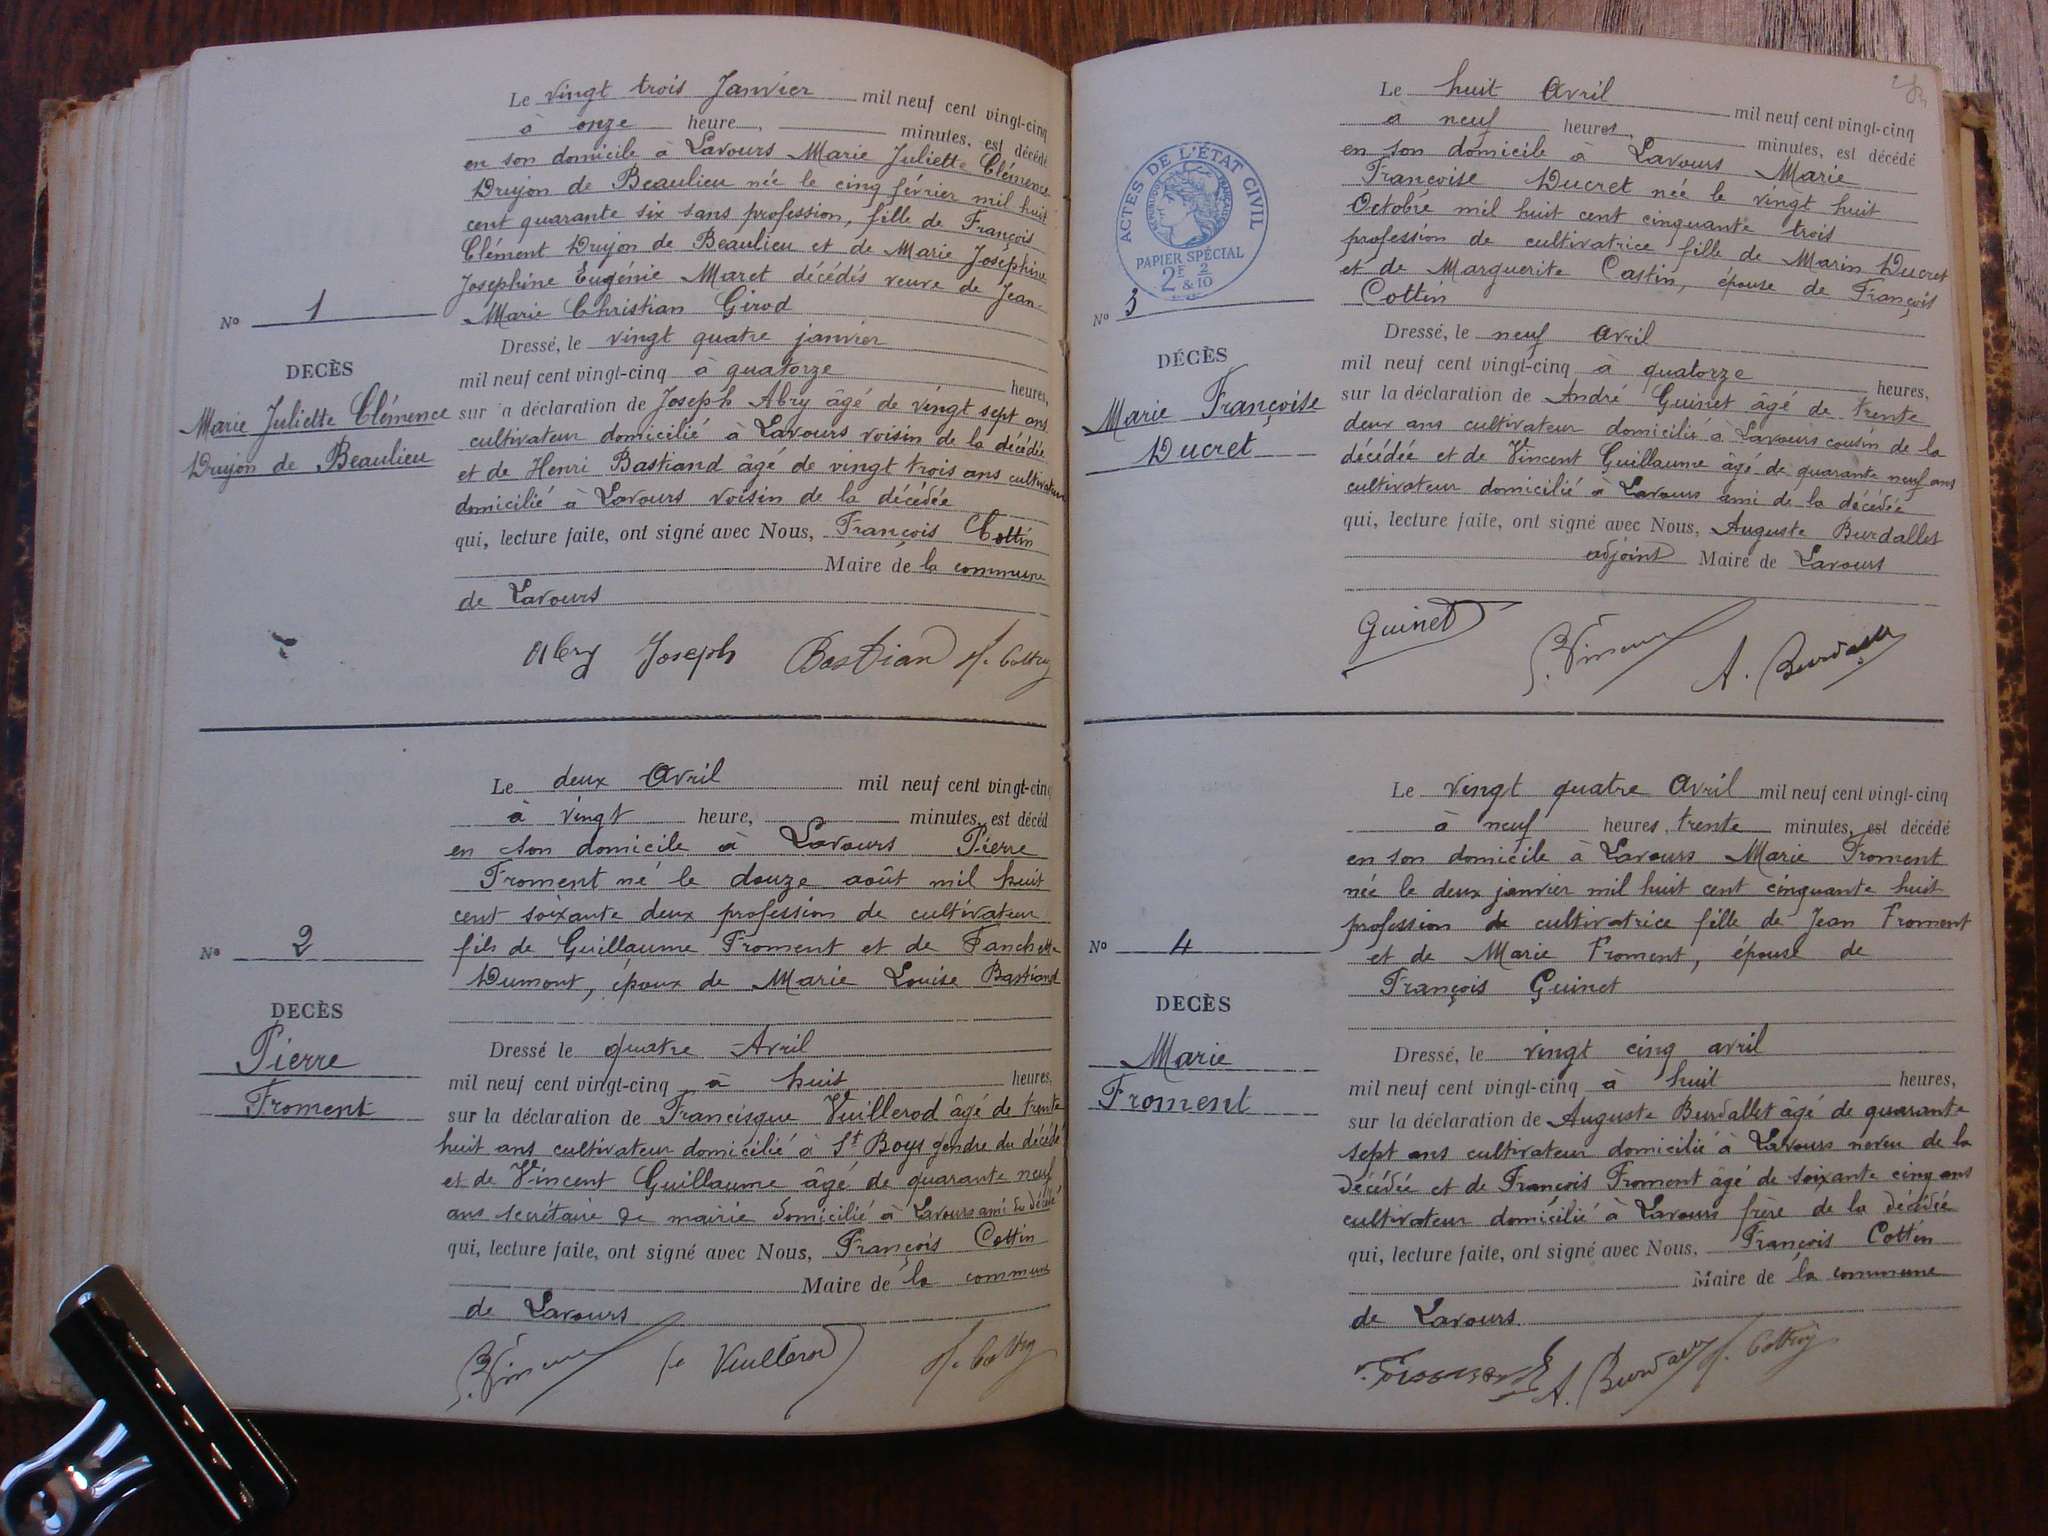 Le vingt trois Janvier mil neuf cent vingt-cinq
à onze heure, minutes, est décédé
en son domicile à Lavours Marie Juliette Clémence
Drujon de Beaulieu née le cinq février mil huit
cent quarante six sans profession, fille de François
Clément Drujon de Beaulieu et de Marie Josephine
Josephine Eugénie Maret décédés veuve de Jean-
Marie Christian Girod
No 1
DECÈS
Marie Juliette Clémence
Drujon de Beaulieu
Dressé, le vingt quatre janvier
mil neuf cent vingt-cinq à quatorze heures,
sur a déclaration de Joseph Abry âgé de vingt sept ans
cultivateur domicilié à Lavours voisin de la décédée
et de Henri Bastiand âgé de vingt trois ans cultivateur
domicilié à Lavours voisin de la décédée
qui, lecture faite, ont signé avec Nous, François Cottin
Maire de la commune
de Lavours
Abry Joseph Bastian
Le deux Avril mil neuf cent vingt-cinq
à vingt heure, minutes, est décéd
en son domicile à Lavours Pierre
Froment né le douze août mil huit
cent soixante deux profession de cultivateur
fils de Guillaume Froment et de Fanchette
Dumont, époux de Marie Louise Bastiand
No 2
DECÈS
Pierre
Froment
Dressé le quatre Avril
mil neuf cent vingt-cinq à huit heures,
sur la déclaration de Francisque Vuillerod âgé de trente
huit ans cultivateur domicilié à St Boys gendre du décédé
et de Vincent Guillaume âgé de quarante neuf
ans secrétaire de mairie domicilié à Lavours ami du décédé
qui, lecture faite, ont signé avec Nous, François Cottin
Maire de la commune
de Lavours
Vuillerod
Le huit Avril mil neuf cent vingt-cinq
à neuf heures, minutes, est décédé
en son domicile à Lavours Marie
Françoise Ducret née le vingt huit
Octobre mil huit cent cinquante trois
profession de cultivatrice fille de Marin Ducret
et de Marguerite Castin, épouse de François
Cottin
ACTES DE L'ÉTAT CIVIL
RÉPUBLIQUE FRANÇAISE
PAPIER SPÉCIAL
2F & 2/10
No 3
DÉCÈS
Marie Françoise
Ducret
Dressé, le neuf avril
mil neuf cent vingt-cinq à quatorze heures,
sur la déclaration de André Guinet âgé de trente
deux ans cultivateur domicilié à Lavours cousin de la
décédée et de Vincent Guillaume âgé de quarante neuf ans
cultivateur domicilié à Lavours ami de la décédée
qui, lecture faite, ont signé avec Nous, Auguste Burdallet
adjoint Maire de Lavours
Guinet A. Burdallet
Le vingt quatre Avril mil neuf cent vingt-cinq
à neuf heures, trente minutes, est décédé
en son domicile à Lavours Marie Froment
née le deux janvier mil huit cent cinquante huit
profession de cultivatrice fille de Jean Froment
et de Marie Froment, épouse de
François Guinet
No 4
DECÈS
Marie
Froment
Dressé, le vingt cinq avril
mil neuf cent vingt-cinq à huit heures,
sur la déclaration de Auguste Burdallet âgé de quarante
sept ans cultivateur domicilié à Lavours neveu de la
décédée et de François Froment âgé de soixante cinq ans
cultivateur domicilié à Lavours frère de la décédée
qui, lecture faite, ont signé avec Nous, François Cottin
Maire de la commune
de Lavours.